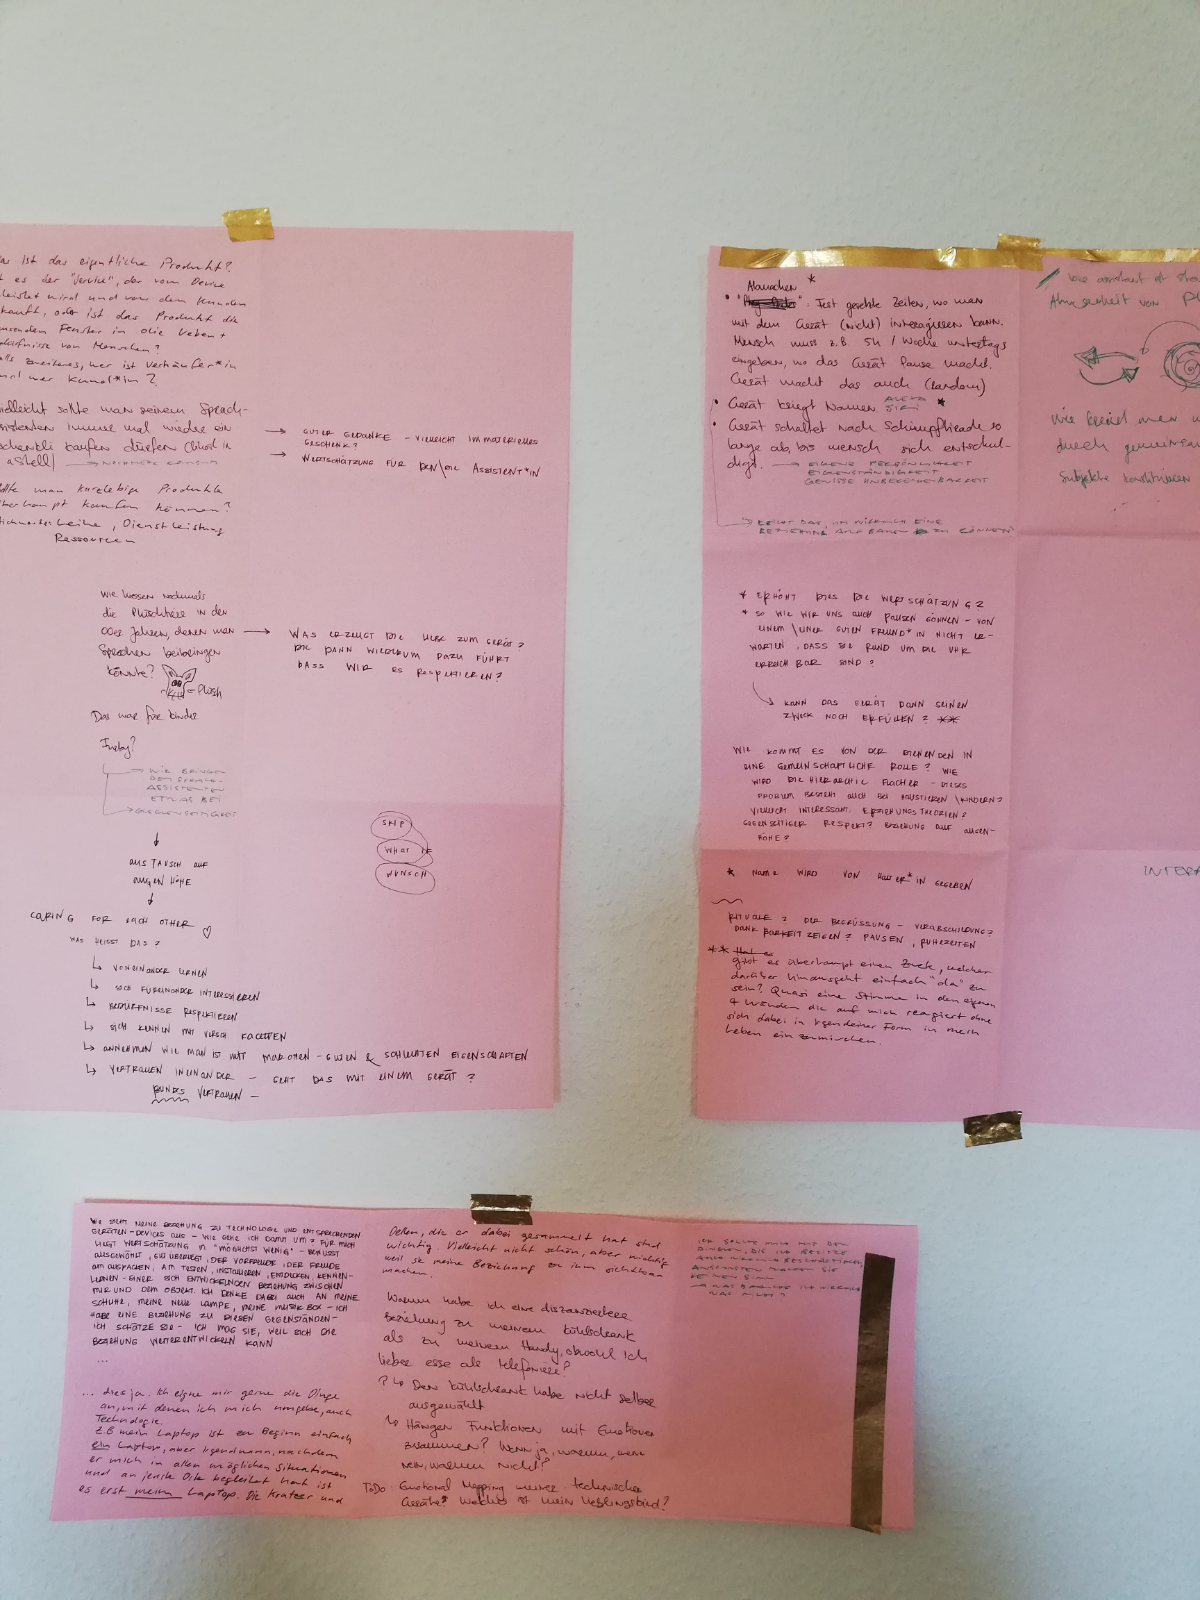 as ist das eigentliche Produkt?
t es der "Service", der vom Device
leistet wird und von dem Kunden
kauft, oder ist das Produkt die
Fenster in die Leben +
dürfnisse von Menschen?
lls zweiteres, wer ist Verkäufer*in
nd wer Kund*in?
elleicht sollte man seinem Sprach-
sistenten immer mal wieder ein
schenkli kaufen dürfen (Ghost in
a Shell)
→ GUTER GEDANKE – VIELLEICHT IMMATERIELLES
GESCHENK?
→ WERTSCHÄTZUNG FÜR DEN/DIE ASSISTENT*IN
ollte man kurzlebige Produkte
überhaupt kaufen können?
leihe, Dienstleistung
Ressourcen
Wie hiessen nochmals
die Plüschtiere in den
00er Jahren, denen man →
Sprechen beibringen
könnte?
= Plüsh
Das war für Kinder
Furby?
WAS ERZEUGT DIE LIEBE ZUM GERÄT?
DIE DANN WIEDERUM DAZU FÜHRT
DASS WIR ES RESPEKTIEREN?
→ WIE BRINGEN
DEN SPRACH-
ASSISTENTEN
ETWAS BEI
→ GEGENSEITIGKEIT
↓
AUSTAUSCH AUF
AUGENHÖHE
↓
SKIP
WHAT IF
WUNSCH
CARING FOR EACH OTHER ♡
WAS HEISST DAS?
↳ VONEINANDER LERNEN
↳ SICH FÜREINANDER INTERESSIEREN
↳ BEDÜRFNISSE RESPEKTIEREN
↳ SICH KENNEN MIT VERSCH. FACETTEN
↳ ANNEHMEN WIE MAN IST MIT MAROTTEN – GUTEN & SCHLECHTEN EIGENSCHAFTEN
↳ VERTRAUEN INEINANDER – GEHT DAS MIT EINEM GERÄT?
VERTRAUEN –
Abmachen *
• : Fest gesetzte Zeiten, wo man
mit dem Gerät (nicht) interagieren kann.
Mensch muss z.B 5h / Woche untertags
eingeben, wo das Gerät Pause macht.
Gerät macht das auch (random)
• Gerät kriegt Namen ALEXA *
SIRI
• Gerät schaltet nach Schimpftirade so
lange ab, bis Mensch sich entschul-
digt. → EIGENE PERSÖNLICHKEIT
EIGENSTÄNDIGKEIT
GEWISSE UNBERECHENBARKEIT
→ REICHT DAS, UM WIRKLICH EINE
BEZIEHUNG AUFBAUEN ZU KÖNNEN?
* ERHÖHT DIES DIE WERTSCHÄTZUNG?
* SO WIE WIR UNS AUCH PAUSEN GÖNNEN – VON
EINEM/EINER GUTEN FREUND*IN NICHT ER-
WARTEN, DASS SIE RUND UM DIE UHR
ERREICHBAR SIND?
↳ KANN DAS GERÄT DANN SEINEN
ZWECK NOCH ERFÜLLEN? **
WIE KOMMT ES VON DER DIENENDEN IN
EINE GEMEINSCHAFTLICHE ROLLE? WIE
WIRD DIE HIERARCHIE FLACHER – DIESES
PROBLEM BESTEHT AUCH BEI HAUSTIEREN/KINDERN?
VIELLEICHT INTERESSANT: ERZIEHUNGSTHEORIEN?
GEGENSEITIGER RESPEKT? BEZIEHUNG AUF AUGEN-
HÖHE?
* NAME WIRD VON USER*IN GEGEBEN
RITUALE? DER BEGRÜSSUNG – VERABSCHIEDUNG?
DANKBARKEIT ZEIGEN? PAUSEN, RUHEZEITEN
** Hat es
gibt es überhaupt einen Zweck, welcher
darüber hinausgeht einfach "da" zu
sein? Quasi eine Stimme in den eigenen
4 Wänden die auf mich reagiert ohne
sich dabei in irgendeiner Form in mein
Leben einzumischen.
assistant ist
Abwesenheit von
Wie
durch gemeinsam
Subjekte konstituieren
INTERA
WIE SIEHT MEINE BEZIEHUNG ZU TECHNOLOGIE UND ENTSPRECHENDEN
GERÄTEN-DEVICES AUS – WIE GEHE ICH DAMIT UM? FÜR MICH
LIEGT WERTSCHÄTZUNG IN "MÖGLICHST WENIG" – BEWUSST
AUSGEWÄHLT, GUT ÜBERLEGT, DER VORFREUDE, DER FREUDE
AM AUSPACKEN, AM TESTEN, INSTALLIEREN, ENTDECKEN, KENNEN-
LERNEN – EINER SICH ENTWICKELNDEN BEZIEHUNG ZWISCHEN
MIR UND DEM OBJEKT. ICH DENKE DABEI AUCH AN MEINE
SCHUHE, MEINE NEUE LAMPE, MEINE MUSIKBOX – ICH
HABE EINE BEZIEHUNG ZU DIESEN GEGENSTÄNDEN –
ICH SCHÄTZE SIE – ICH MAG SIE, WEIL SICH DIE
BEZIEHUNG WEITERENTWICKELN KANN
...
... dies ja. Ich eigne mir gerne die Dinge
an, mit denen ich mich umgebe, auch
Technologie.
z.B mein Laptop ist zu Beginn einfach
ein Laptop, aber irgendwann, nachdem
er mich in allen möglichen Situationen
und an jenste Orte begleitet hat ist
es erst mein Laptop. Die Kratzer und
Dellen, die er dabei gesammelt hat sind
wichtig. Vielleicht nicht schön, aber wichtig
weil sie meine Beziehung zu ihm sichtbar
machen.
Warum habe ich eine distanziertere
Beziehung zu meinem Kühlschrank
als zu meinem Handy, obwohl ich
lieber esse als telefoniere?
? ↳ Den Kühlschrank habe nicht selber
ausgewählt
↳ Hängen Funktionen mit Emotionen
zusammen? Wenn ja, warum, wenn
nein, warum nicht?
ToDo: Emotional Mapping meiner technischen
Geräte? Welches ist mein Lieblingskind?
ICH SOLLTE MICH MIT DEN
DINGEN, DIE ICH BESITZE